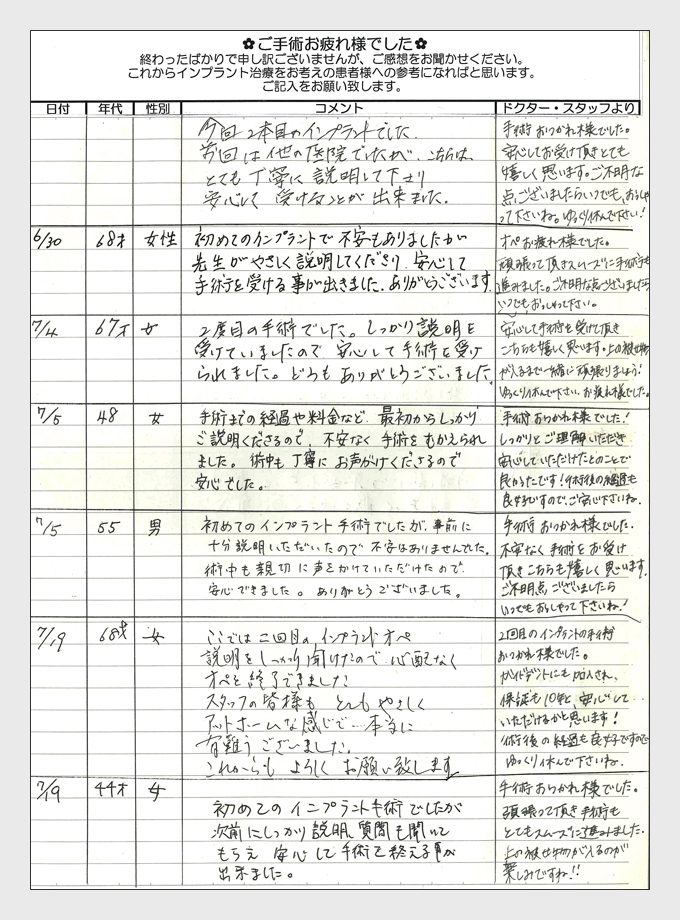 ✿ご手術お疲れ様でした✿
終わったばかりで申し訳ございませんが、ご感想をお聞かせください。
これからインプラント治療をお考えの患者様への参考になればと思います。
ご記入をお願い致します。
日付 年代 性別 コメント ドクター・スタッフより
今回2本目のインプラントでした
前回は他の医院でしたが、こちらは、
とても丁寧に説明して下さり
安心して受けることが出来ました.
手術おつかれ様でした。
安心してお受け頂きとても
嬉しく思います。ご不明な
点ございましたらいつでも、おっしゃ
って下さいね。ゆっくり休んで下さい!
6/30 68才 女性
初めてのインプラントで不安もありましたが
先生がやさしく説明してくださり、安心して
手術を受ける事が出きました、ありがとうございます
オペお疲れ様でした。
頑張って頂きスムーズに手術も
進みました。ご不明な点ございましたら
いつでもおっしゃって下さい。
7/4 67才 女
2度目の手術でした。しっかり説明を
受けていましたので、安心して手術を受け
られました。どうもありがとうございました
安心して手術を受けて頂き
こちらも嬉しく思います。上の被せ物
が入るまで一緒に頑張りましょう!
ゆっくり休んで下さい。お疲れ様でした。
7/5 48 女
手術までの経過や料金など、最初からしっかり
ご説明くださるので、不安なく手術をむかえられ
ました。術中も丁寧にお声がけくださるので
安心でした。
手術おつかれ様でした!
しっかりとご理解いただき
安心していただけたとのことで
良かったです!術後の経過も
良好ですので、ご安心下さいね。
7/5 55 男
初めてのインプラント手術でしたが、事前に
十分説明いただいたので不安はありませんでした。
術中も親切に声をかけていただけたので、
安心できました。ありがとうございました。
手術おつかれ様でした.
不安なく手術をお受け
頂きこちらも嬉しく思います.
ご不明点ございましたら
いつでもおっしゃって下さいね!
7/19 68才 女
ここでは二回目のインプラントオペ
説明をしっかり聞けたので心配なく
オペを終了できました
スタッフの皆様もとてもやさしく
アットホームな感じで…本当に
有難うございました。
これからもよろしくお願い致します
2回目のインプラントの手術
おつかれ様でした。
ガイドデントにも加入され、
保証も10年と、安心して…
いただけるかと思います!
術後の経過も良好ですので
ゆっくり休んで下さいね.
7/19 44才 女
初めてのインプラント手術でしたが
次前にしっかり説明、質問も聞いて
もらえ安心して手術を終える事が
出来ました。
手術おつかれ様でした。
頑張って頂き手術も
とてもスムーズに進みました.
上の被せ物が入るのが
楽しみですね!!